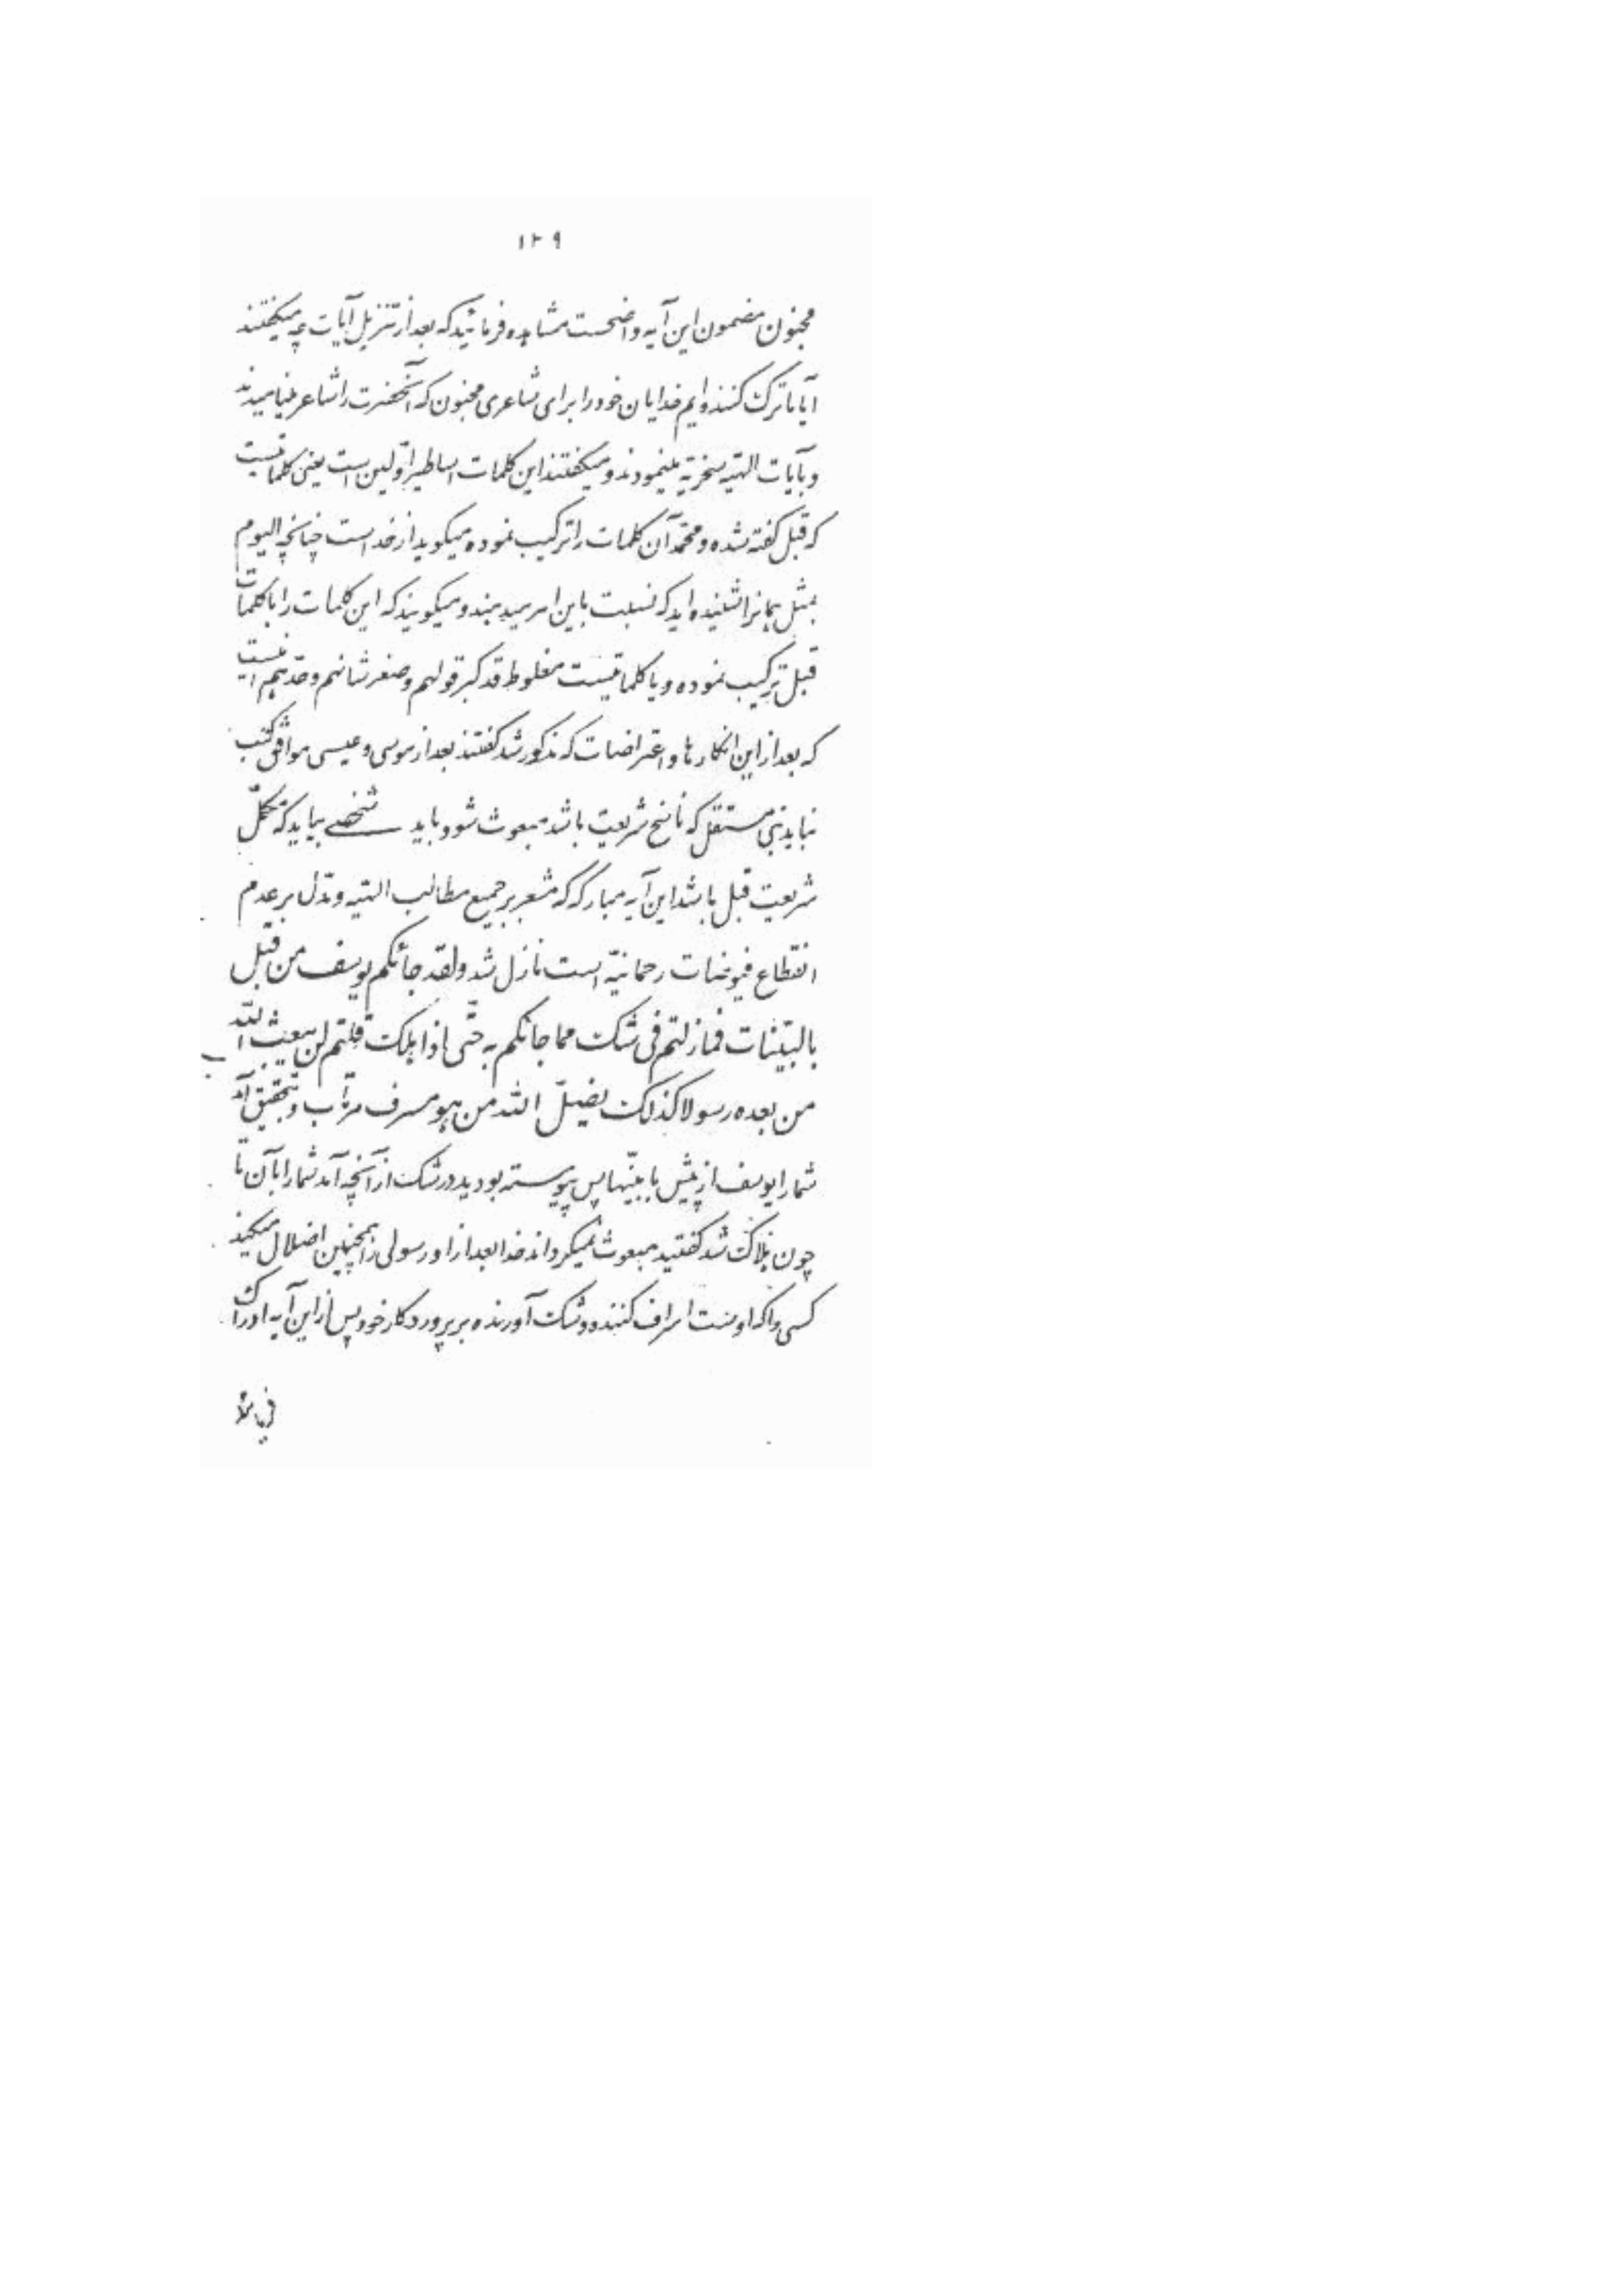 ۱۲۹
مجنون مضمون این آیه واضحست مشاهده فرمائید که بعد از تنزیل آیات چه میگفتند
آیا ما ترک کننده‌ایم خدایان خود را برای شاعری مجنون که آنحضرت را شاعر مینامیدند
و بآیات الهیّه سخریّه مینمودند و میگفتند این کلمات اساطیر اوّلین است یعنی کلماتیست
که قبل گفته شده و محمّد آن کلمات را ترکیب نموده میگوید از خداست چنانچه الیوم
بمثل همانرا شنیده‌اید که نسبت باین امر میدهند و میگویند که این کلمات را با کلمات
قبل ترکیب نموده و یا کلماتیست مغلوط قد کبر قولهم و صغر شانهم و حدّهم اینست
که بعد از این انکارها و اعتراضات که مذکور شد گفتند بعد از موسی و عیسی موافق کتب
نباید نبیّ مستقل که ناسخ شریعت باشد مبعوث شود و باید شخصی بیاید که مکمّل
شریعت قبل باشد این آیه مبارکه که مشعر بر جمیع مطالب الهیّه و مدلّ بر عدم
انقطاع فیوضات رحمانیّه است نازل شد ولقد جائکم یوسف من قبل
بالبیّنات فمازلتم فی شک مما جائکم به حتّی اذا هلک قلتم لن یبعث اللّه
من بعده رسولا کذلک یضلّ اللّه من هو مسرف مرتاب و بتحقیق آمد
شما را یوسف از پیش با بیّنها پس پیوسته بودید در شک از آنچه آمد شما را بآن تا
چون هلاک شد گفتید مبعوث نمیگرداند خدا بعد از او رسولی را همچنین اضلال میکند
کسی را که اوست اسراف کننده و شک آورنده بر پروردگار خود پس از این آیه ادراک
فرمائید